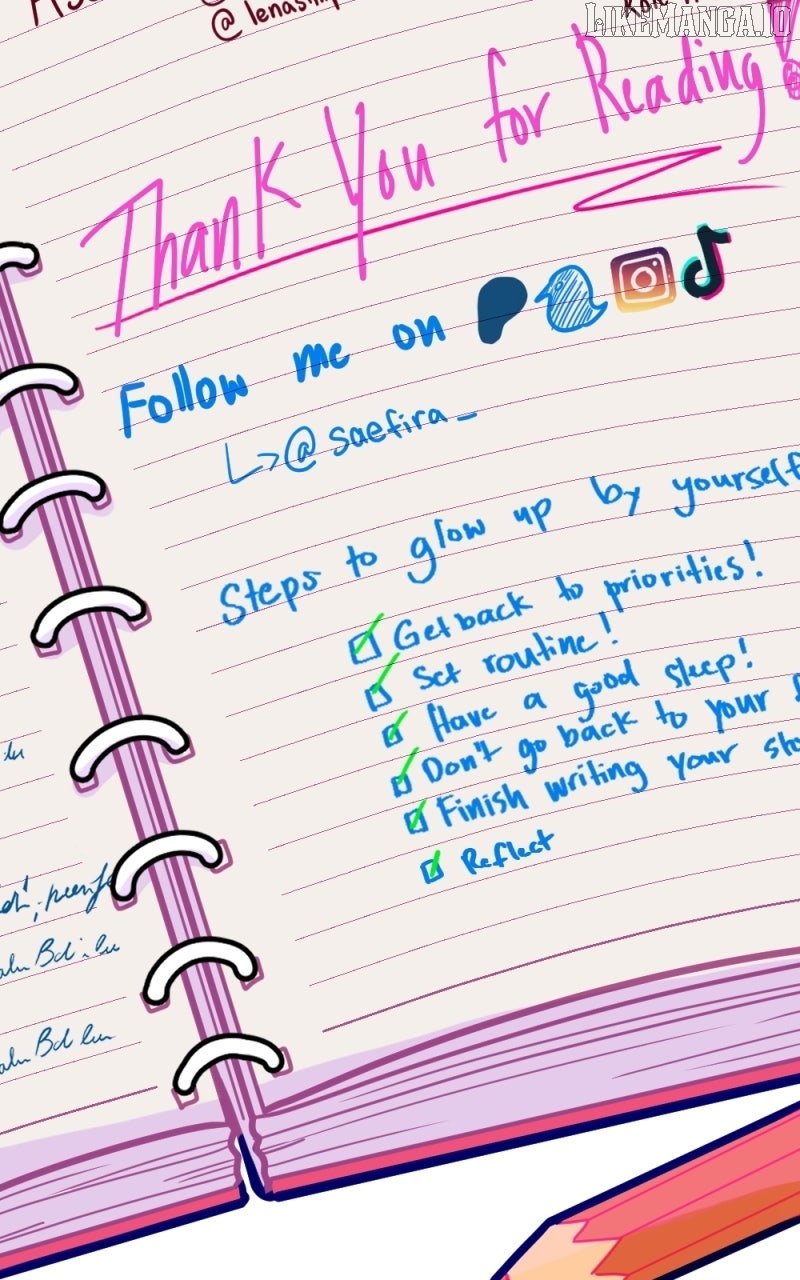 LIKEMANGA.IO
Thank You for Reading
Follow me on
↳@saefira_
Steps to glow up by yourself
Get back to priorities!
Set routine!
Have a good sleep!
Don't go back to your
Finish writing your
Reflect